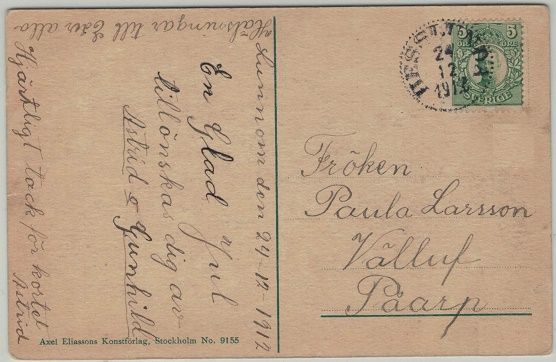 Hälsningar till Eder alla
Lunnom den 24-12-1912
En Glad Jul
tillönskas dig av
Astrid o Gunhild
Hjärtligt tack för kortet
Astrid
Axel Eliassons Konstförlag, Stockholm No. 9155
5 5
SVERIGE
24
12
Fröken
Paula Larsson
Välluf
Påarp